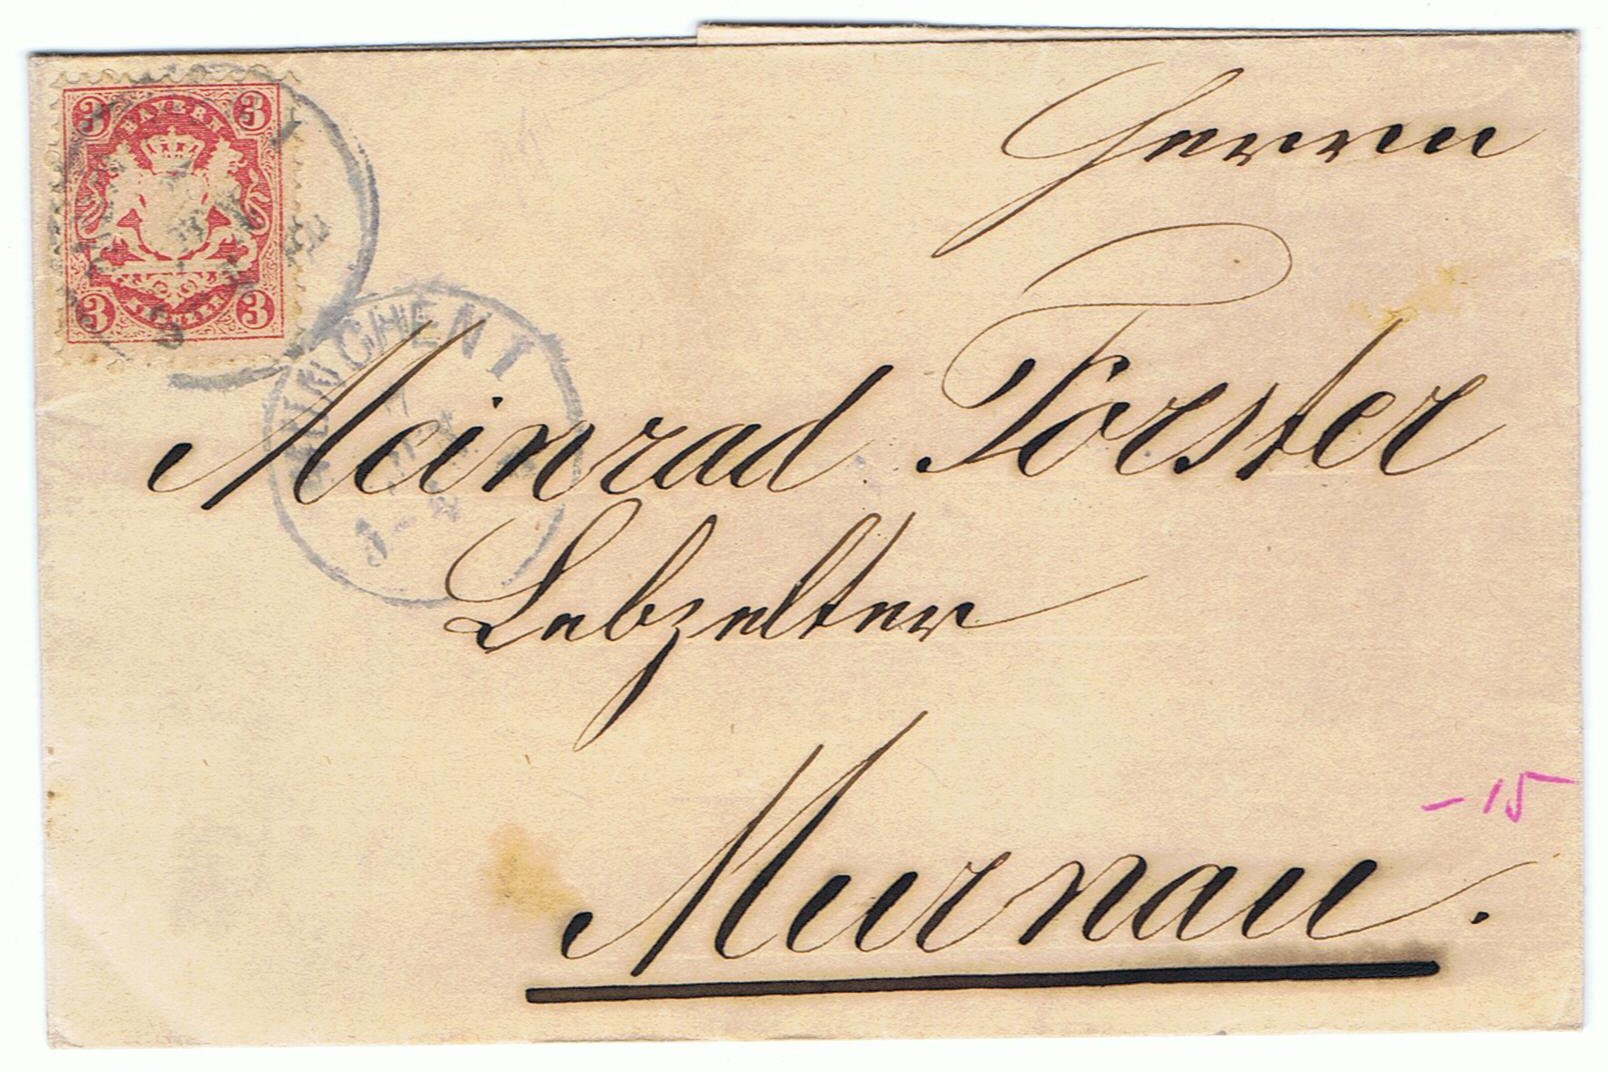 3 BAYERN 3
3 KREUZER 3
MÜNCHEN I
Herrn
Meinrad Forster
Lebzelter
Murnau.
- 15